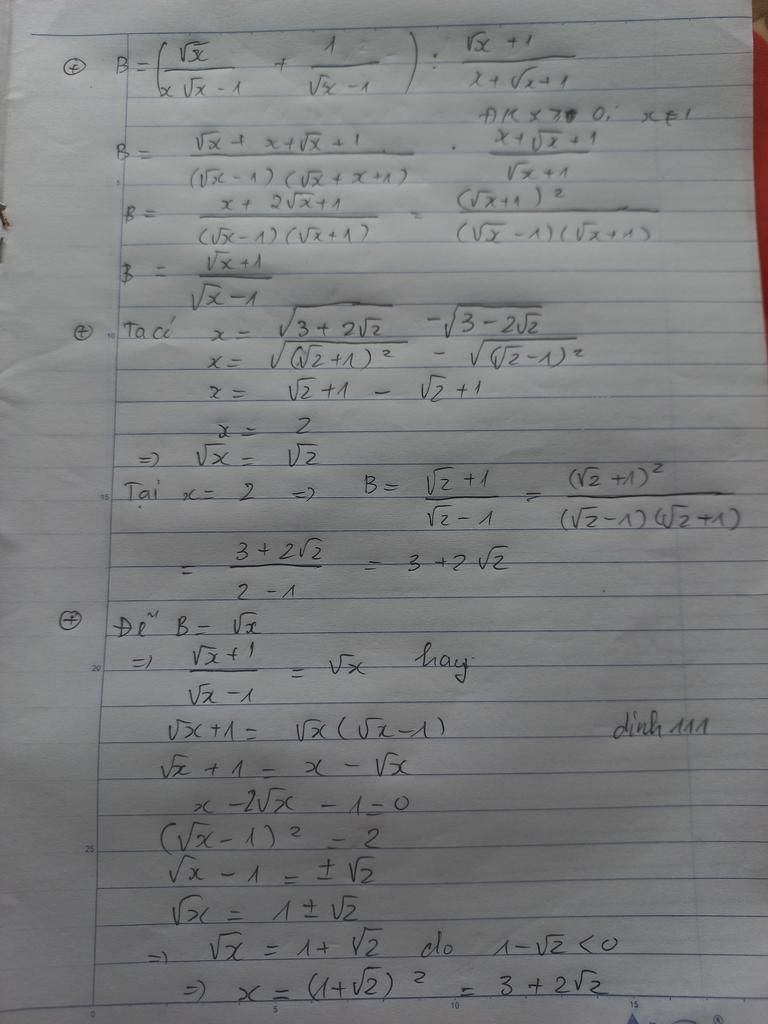 ⊕ B = (√x / (x√x - 1) + 1 / (√x - 1)) : (√x + 1) / (x + √x + 1)
ĐK x ⩾ 0; x ≠ 1
B = (√x + x + √x + 1) / ((√x - 1)(√x + x + 1)) . (x + √x + 1) / (√x + 1)
B = (x + 2√x + 1) / ((√x - 1)(√x + 1)) = (√x + 1)² / ((√x - 1)(√x + 1))
B = (√x + 1) / (√x - 1)
⊕ Ta có x = √(3 + 2√2) - √(3 - 2√2)
x = √((√2 + 1)²) - √((√2 - 1)²)
x = √2 + 1 - √2 + 1
x = 2
=> √x = √2
Tại x = 2 => B = (√2 + 1) / (√2 - 1) = (√2 + 1)² / ((√2 - 1)(√2 + 1))
= (3 + 2√2) / (2 - 1) = 3 + 2√2
⊕ Để B = √x
=> (√x + 1) / (√x - 1) = √x hay
√x + 1 = √x(√x - 1) dinh 111
√x + 1 = x - √x
x - 2√x - 1 = 0
(√x - 1)² = 2
√x - 1 = ± √2
√x = 1 ± √2
=> √x = 1 + √2 do 1 - √2 < 0
=> x = (1 + √2)² = 3 + 2√2